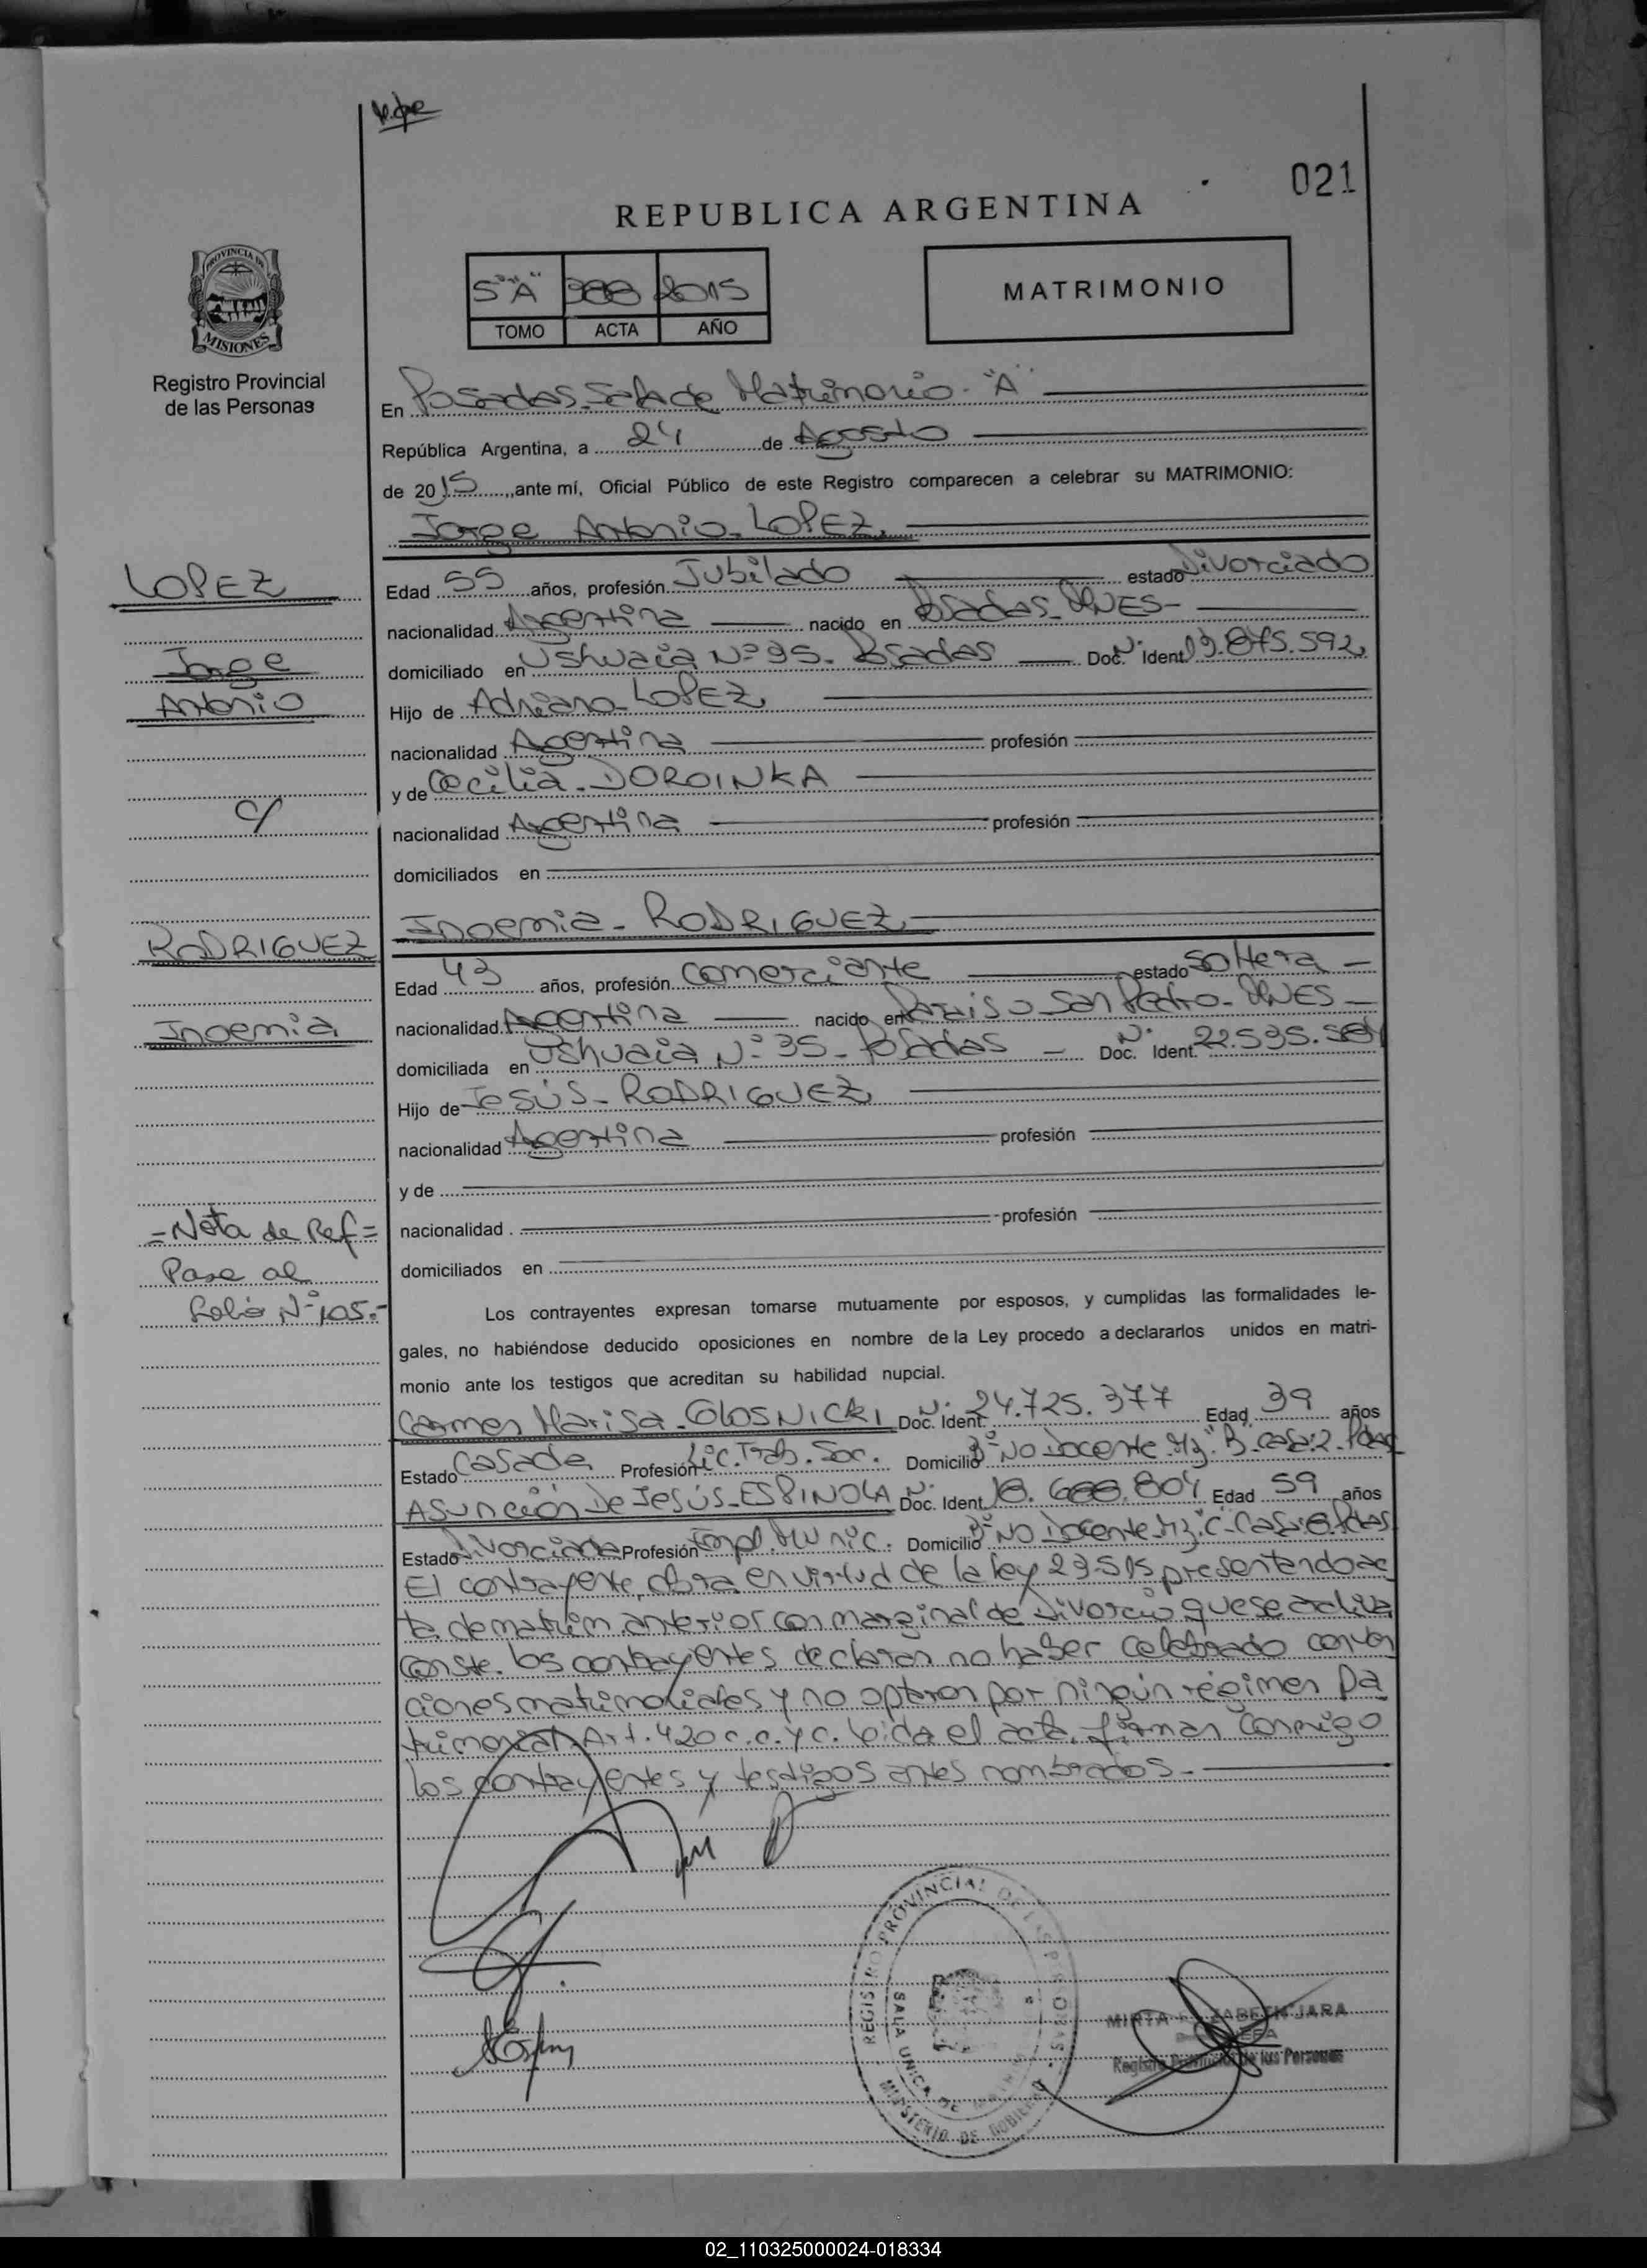 021
REPUBLICA ARGENTINA
5° "A" 988 2015
TOMO ACTA AÑO
MATRIMONIO
PROVINCIA DE
MISIONES
Registro Provincial
de las Personas
En Posadas-Sala de Matrimonio-"A"
República Argentina, a 24 de Agosto
de 2015, ante mí, Oficial Público de este Registro comparecen a celebrar su MATRIMONIO:
Jorge Antonio-LOPEZ
LOPEZ
Jorge
Antonio
c/
RODRIGUEZ
Inoemia
=Nota de Ref=
Pase al
Folio N°105.-
Edad 55 años, profesión Jubilado estado Divorciado
nacionalidad Argentina nacido en Posadas-MNES-
domiciliado en Ushuaia N°35- Posadas Doc. N° Ident 13.875.592
Hijo de Adriano-LOPEZ
nacionalidad Argentina profesión
y de Cecilia-DOROINKA
nacionalidad Argentina profesión
domiciliados en
Inoemia-RODRIGUEZ
Edad 43 años, profesión Comerciante estado Soltera-
nacionalidad Argentina nacido en Paraiso-San Pedro-MNES-
domiciliada en Ushuaia N°35-Posadas- Doc. N° Ident. 22.535.
Hijo de Jesús-RODRIGUEZ
nacionalidad Argentina profesión
y de
nacionalidad profesión
domiciliados en
Los contrayentes expresan tomarse mutuamente por esposos, y cumplidas las formalidades le-
gales, no habiéndose deducido oposiciones en nombre de la Ley procedo a declararlos unidos en matri-
monio ante los testigos que acreditan su habilidad nupcial.
Carmen Marisa-GLOSNICKI Doc. N° Ident. 24.725.377 Edad 39 años
Estado Casada Profesión Lic. Trab. Soc. Domicilio B° NO Docente Mz. "B" casa:2-Pdas
Asunción De Jesús-ESPINOLA Doc. N° Ident. 18.688.804 Edad 59 años
Estado Divorciada Profesión Empl. Munic. Domicilio B° NO Docente-Mz. "C"-Casa:8 Pdas
El contrayente, obra en virtud de la ley 23.515 presentando ac
ta de matrim. anterior con marginal de Divorcio que se archiva
conste. los contrayentes declaran no haber celebrado conven
ciones matrimoniales y no optaron por ningún régimen pa
trimonial Art. 420 c.c. y c. leida el acta, firman conmigo
los contrayentes y testigos antes nombrados.-
REGISTRO PROVINCIAL DE LAS PERSONAS
SALA UNICA DE
MINISTERIO DE GOBIERNO
MIRTA ELIZABETH JARA
Registro Provincial de las Personas
02_110325000024-018334